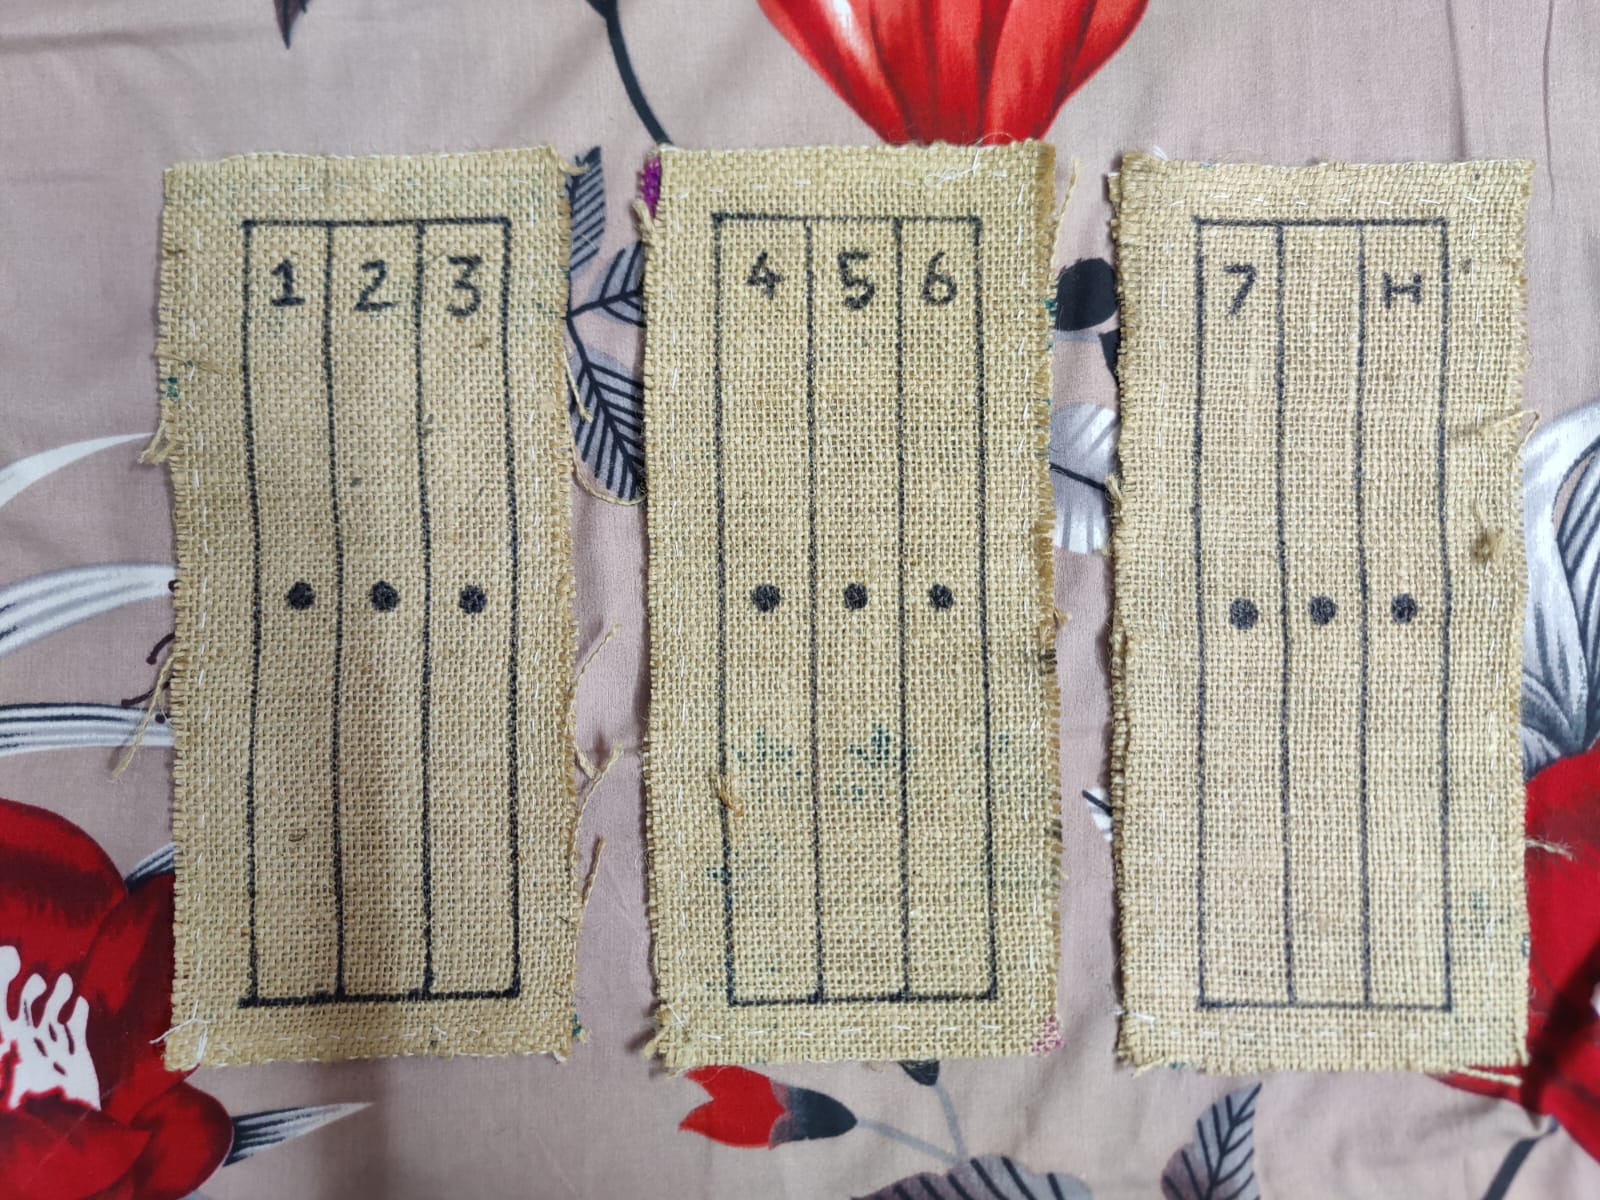 1 2 3 4 5 6 7 H